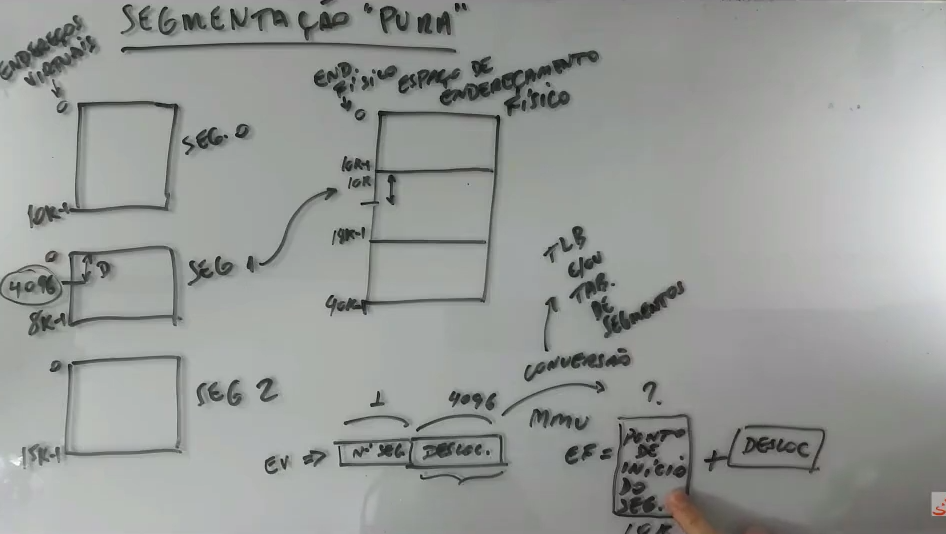 SEGMENTAÇÃO "PURA"
ENDEREÇOS
VIRTUAIS
0
10K-1
SEG. 0
0
4096
D
8K-1
SEG 1
0
15K-1
SEG 2
END.
FÍSICO
0
ESPAÇO DE
ENDEREÇAMENTO
FÍSICO
10K-1
10K
18K-1
40K-1
TLB
E/OU
TAB.
DE
SEGMENTOS
CONVERSÃO
MMU
1
4096
EV ⇒ Nº SEG DESLOC.
?
EF = PONTO
DE
INÍCIO
DO
SEG.
+ DESLOC